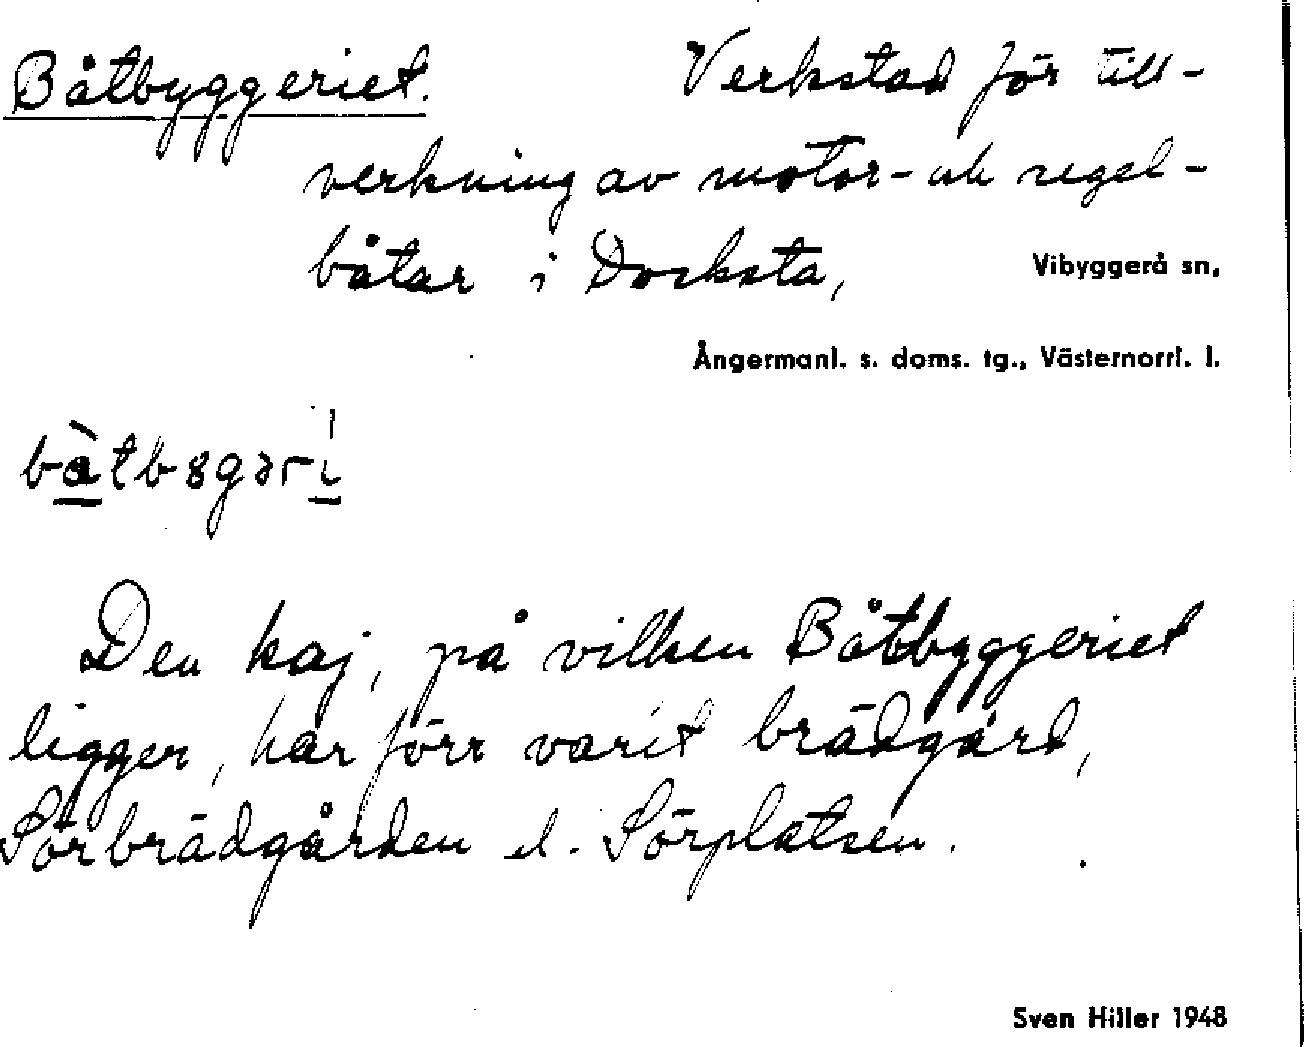 Båtbyggeriet. Verkstad för till-
verkning av motor- och segel-
båtar i Docksta, Vibyggerå sn,
Ångermanl. s. doms. tg., Västernorrl. l.
Den kaj, på vilken Båtbyggeriet
ligger, har förr varit brädgård,
Sörbrädgården el. Sörplatsen.
Sven Hiller 1948